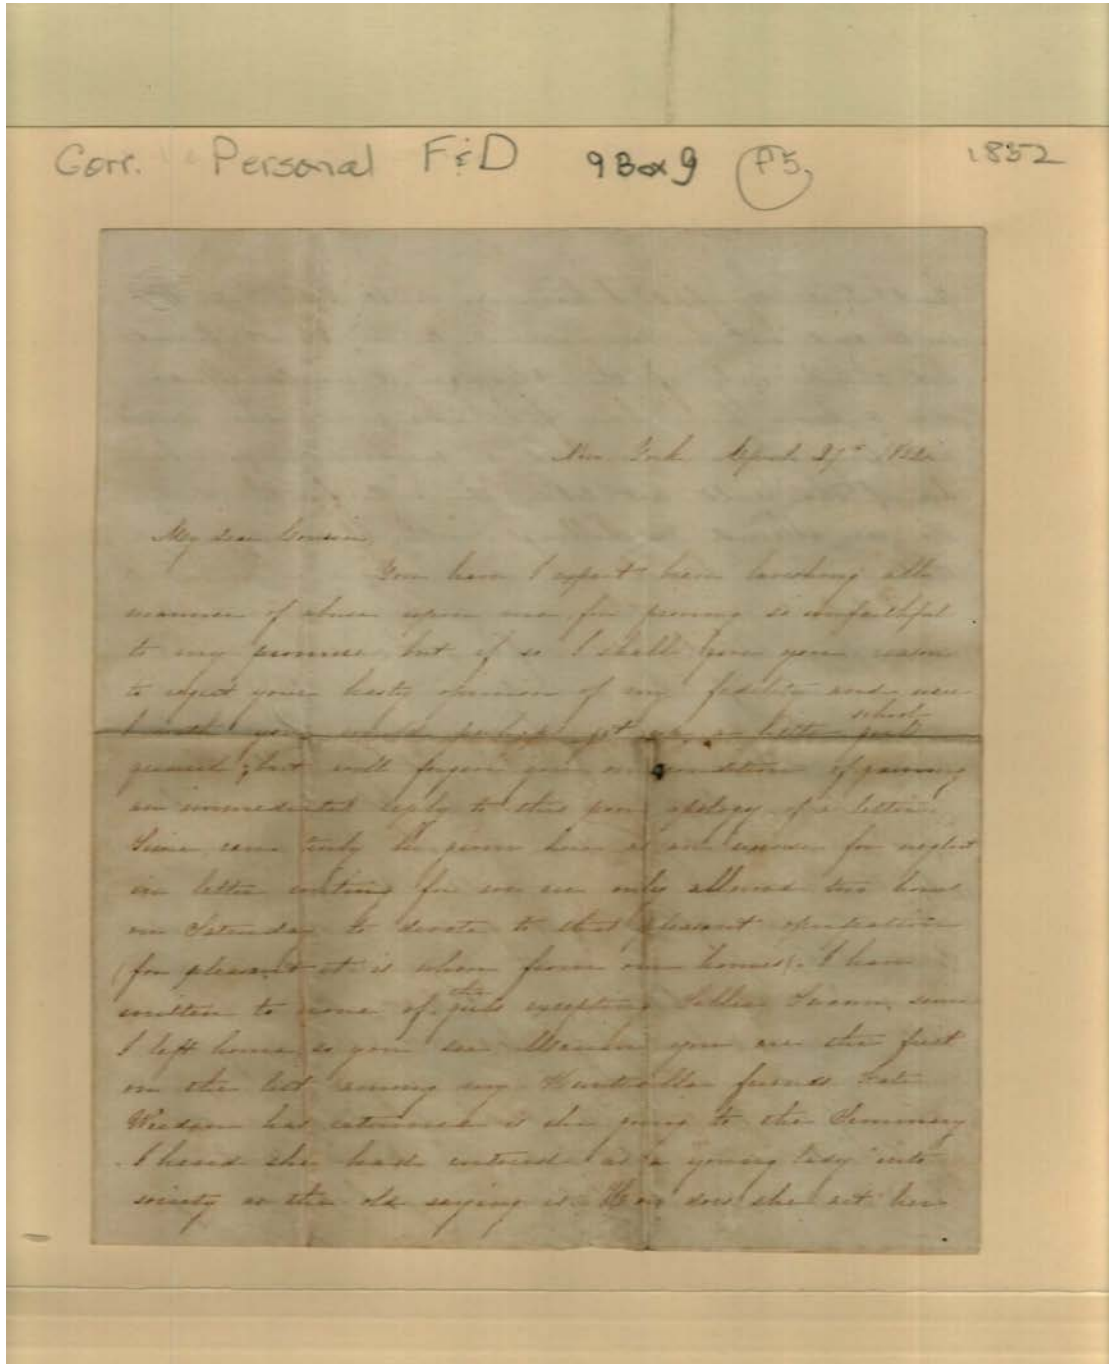 Corr. Personal F&D 9 Box 9 P5. 1852
New York April 27th 1852
My dear Cousin,
You have I expect been lavishing all
manner of abuse upon me for proving so unfaithful
to my promise, but if so I shall give you reason
to regret your hasty opinion of my fidelity and
I you could perhaps not a letter school
but will forgive you on condition of
an immediate reply to this poor apology of a letter.
Time can truly be given here as an excuse for neglect
in letter writing for we are only allowed two hours
on Saturday to devote to that pleasant
(for pleasant it is when from our homes). I have
written to none of the girls excepting Sallie since
I left home, so you see you are the first
on the list among my Huntsville friends. Kate
Weeden has is she going to the Seminary
I heard she had entered as a "young lady" into
society as the old saying is. How does she act her